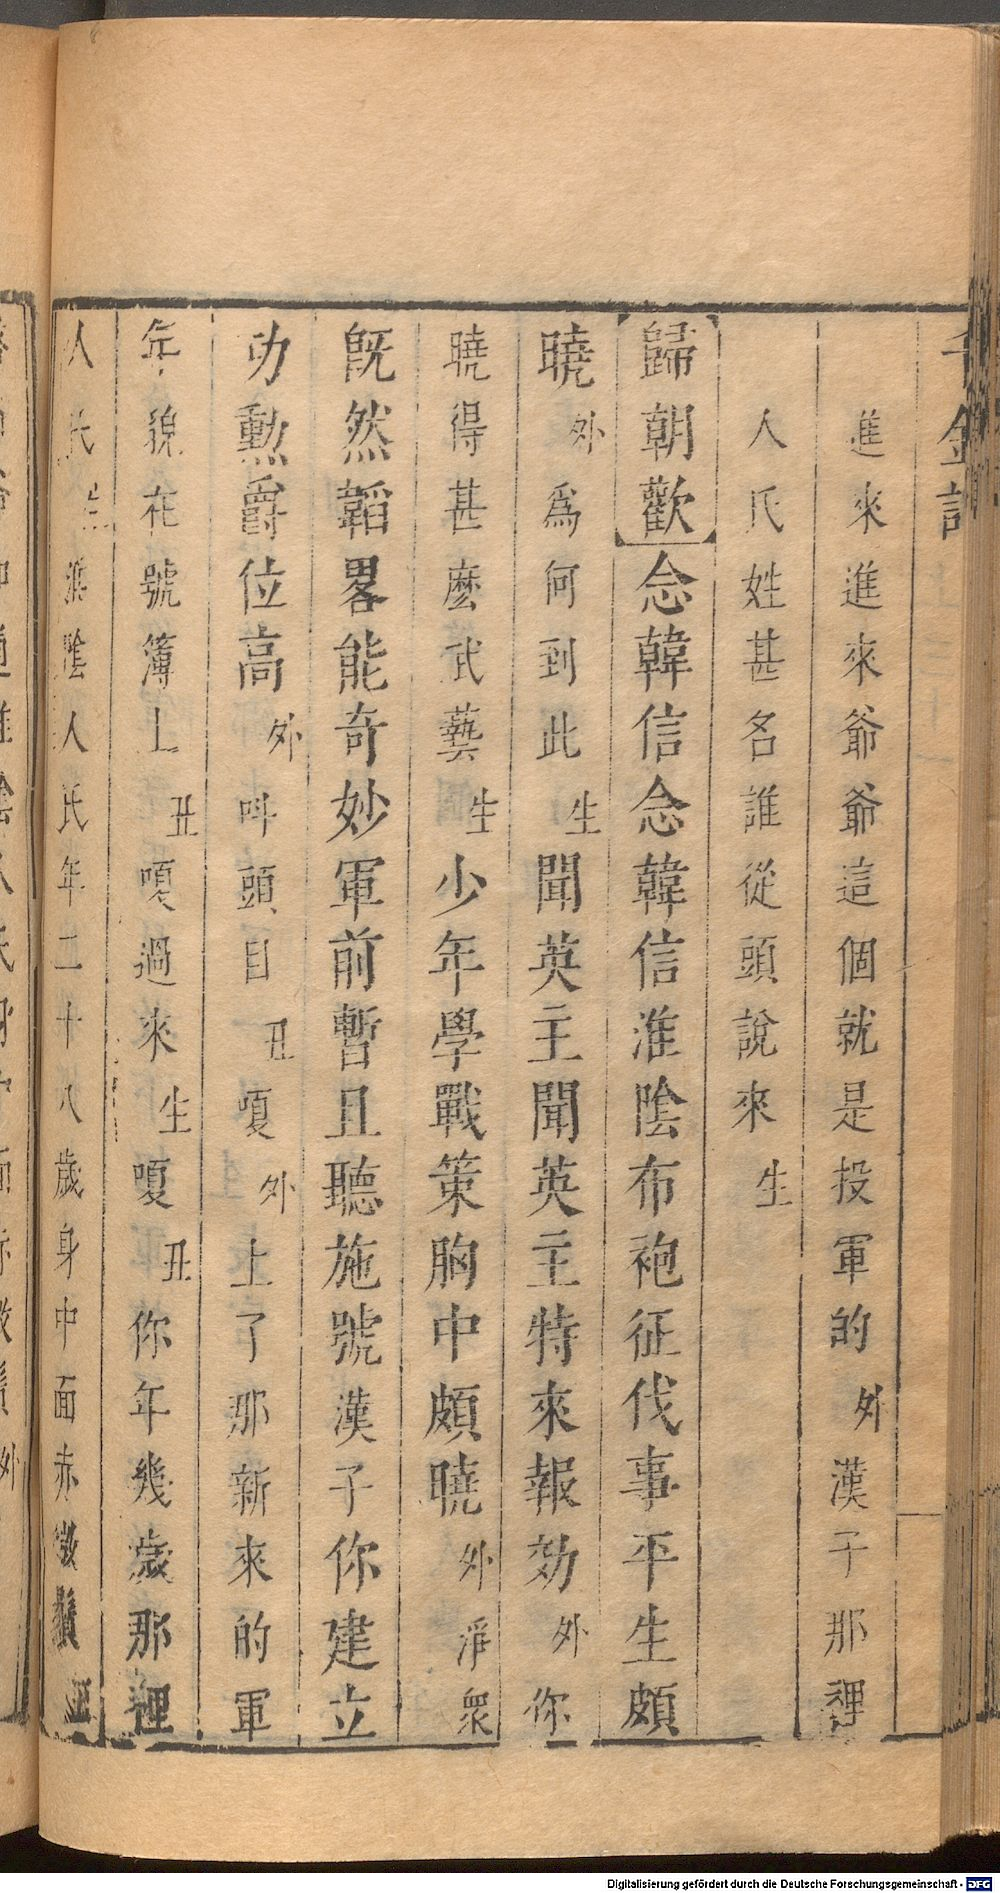 千金記
進來進來爺爺這個就是投軍的外漢子那裡
人氏姓甚名誰從頭說來生
歸朝歡念韓信念韓信淮陰布袍征伐事平生頗
曉外爲何到此生聞英主聞英主特來報効外你
曉得甚麽武藝生少年學戰策胸中頗曉外淨衆
旣然韜畧能奇妙軍前暫且聽施號漢子你建立
功勲爵位高外呌頭目丑嗄外上了那新來的軍
年貌在號簿上丑嗄過來生嗄丑你年幾歲那裡
人氏生淮陰人氏年二十八歲身中面赤微鬚丑
Digitalisierung gefördert durch die Deutsche Forschungsgemeinschaft - DFG